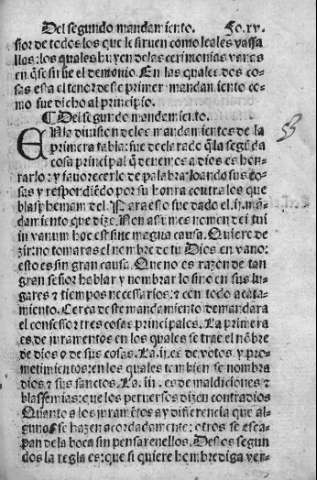 Del segundo mandamiento. Fo.xv.
ñor de todos los que le siruen como leales vassa
llos: los quales huyen delas cerimonias vanas
en q̃ se sirue el demonio. En las quales dos co-
sas esta el tenor deste primer mandamiento co-
mo fue dicho al principio.
¶ Del segundo mandamiento.
EN la diuision delos mandamientos de la
primera tabla: fue declarado q̃ la segũda
cosa principal q̃ deuemos a dios es hon-
rarlo: y fauorecerle de palabra loando sus co-
sas y respondiẽdo por su honra contra los que
blasphemam del. Para esto fue dado el.ij.mã-
damiento que dize. Non assumes nomen dei tui
in vanum hoc est sine magna causa. Quiere de-
zir: no tomaras el nombre de tu Dios en vano:
esto es sin gran causa. Que no es razon de tan
gran señor hablar y nombrar lo sino en sus lu-
gares ⁊ tiempos necessarios: ⁊ con todo acata-
miento. Cerca deste mandamiento demandara
el confessor tres cosas principales. La primera
es de juramentos en los quales se trae el nõbre
de dios o de sus cosas. La.ij.es de votos y pro-
metimientos: en los quales tambien se nombra
dios ⁊ sus sanctos. La.iij.es de maldiciones ⁊
blasfemias: que los peruersos dizen contra dios
Quanto a los juramẽtos ay diferencia que al-
gunos se hazen acordadamente: otros se esca-
pan dela boca sin pensar en ellos. Destos segun
dos la regla es: que si quiere hombre diga ver-